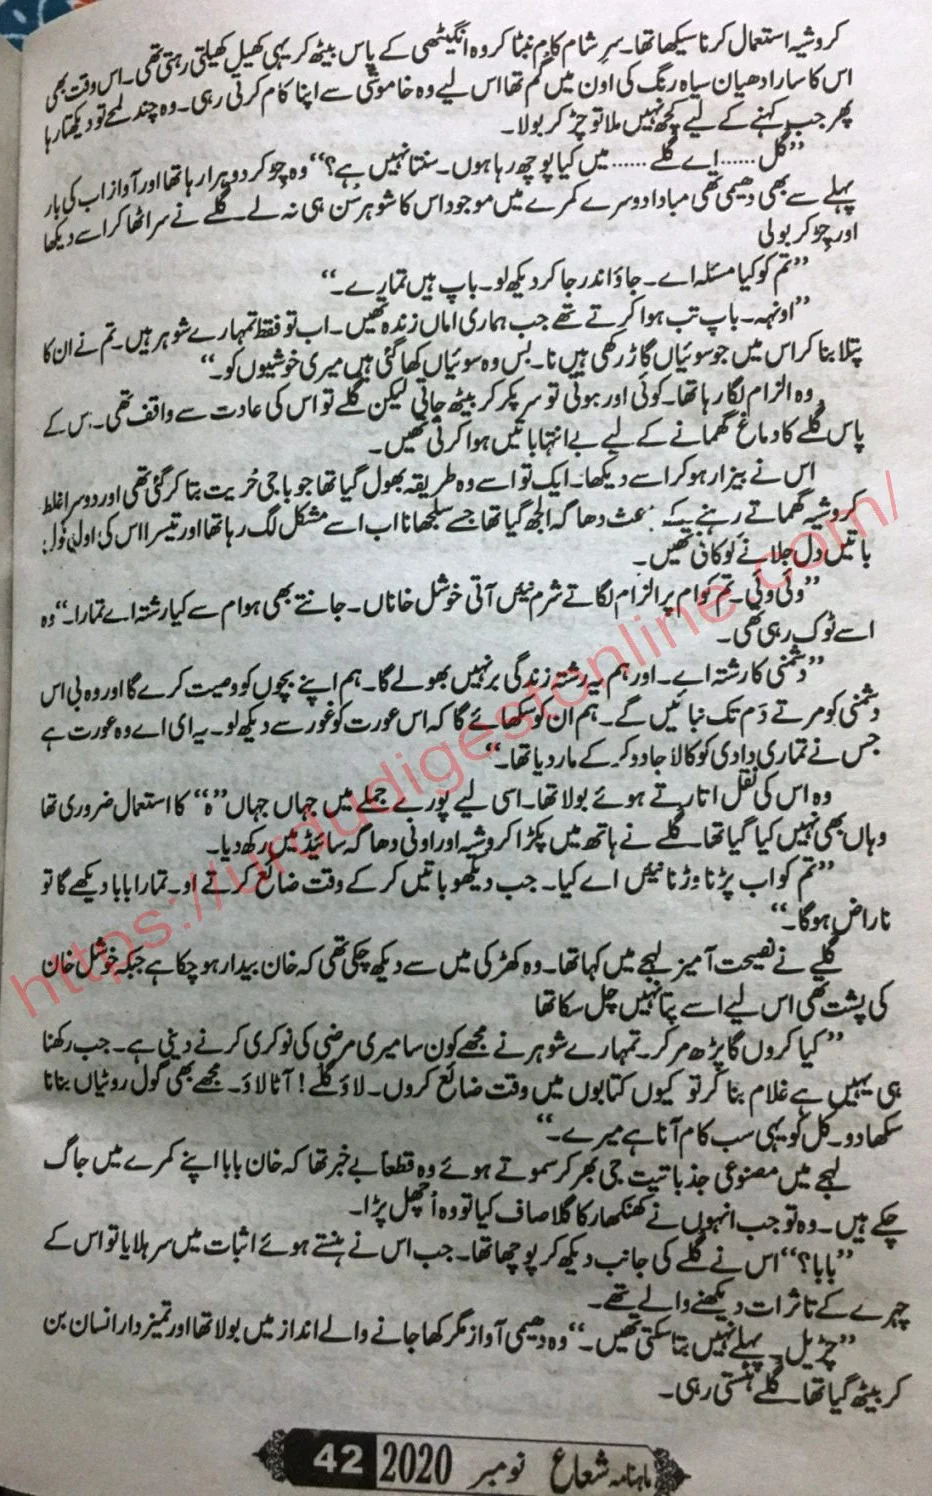 کروشیہ استعمال کرنا سیکھا تھا۔ سرِ شام کام نبٹا کر وہ انگیٹھی کے پاس بیٹھ کر یہی کھیل کھیلتی رہتی تھی۔ اس وقت بھی
اس کا سارا دھیان سیاہ رنگ کی اون میں گم تھا اس لیے وہ خاموشی سے اپنا کام کرتی رہی۔ وہ چند لمحے تو دیکھتا رہا
پھر جب کہنے کے لیے کچھ نہیں ملا تو چڑ کر بولا۔
”گل...... اے گلے...... میں کیا پوچھ رہا ہوں۔ سنتا نہیں ہے؟“ وہ چڑ کر دوہرا رہا تھا اور آواز اب کی بار
پہلے سے بھی دھیمی تھی مبادا دوسرے کمرے میں موجود اس کا شوہر سن ہی نہ لے۔ گلے نے سر اٹھا کر اسے دیکھا
اور چڑ کر بولی
”تم کو کیا مسئلہ اے۔ جاؤ اندر جا کر دیکھ لو۔ باپ ہیں تمارے۔“
”اونہہ۔ باپ تب ہوا کرتے تھے جب ہماری اماں زندہ تھیں۔ اب تو فقط تمہارے شوہر ہیں۔ تم نے ان کا
پتلا بنا کر اس میں جو سوئیاں گاڑ رکھی ہیں نا۔ بس وہ سوئیاں کھا گئی ہیں میری خوشیوں کو۔“
وہ الزام لگا رہا تھا۔ کوئی اور ہوتی تو سر پکڑ کر بیٹھ جاتی لیکن گلے تو اس کی عادت سے واقف تھی۔ جس کے
پاس گلے کا دماغ گھمانے کے لیے بے انتہا باتیں ہوا کرتی تھیں۔
اس نے بیزار ہو کر اسے دیکھا۔ ایک تو اسے وہ طریقہ بھول گیا تھا جو باجی حُریت بتا کر گئی تھی اور دوسرا غلط
کروشیہ گھماتے رہنے کے بعث دھاگہ الجھ گیا تھا جسے سلجھانا اب اسے مشکل لگ رہا تھا اور تیسرا اس کی اول فول
باتیں دل جلانے کو کافی تھیں۔
”وئی وئی۔ تم کو ام پر الزام لگاتے شرم نیئں آتی خوشل خاناں۔ جانتے بھی ہو ام سے کیا رشتہ اے تمارا۔“ وہ
اسے ٹوک رہی تھی۔
”دشمنی کا رشتہ اے۔ اور ہم یہ رشتہ زندگی بر نہیں بھولے گا۔ ہم اپنے بچوں کو وصیت کرے گا اور وہ بی اس
دشمنی کو مرتے دَم تک نبائیں گے۔ ہم ان کو سکھائے گا کہ اس عورت کو غور سے دیکھ لو۔ یہ ای اے وہ عورت ہے
جس نے تماری دادی کو کالا جادو کر کے مار دیا تھا۔“
وہ اس کی نقل اتارتے ہوئے بولا تھا۔ اسی لیے پورے جملے میں جہاں جہاں ”ہ“ کا استعمال ضروری تھا
وہاں بھی نہیں کیا گیا تھا۔ گلے نے ہاتھ میں پکڑا کروشیہ اور اونی دھاگہ سائیڈ میں رکھ دیا۔
”تم کو اب پڑنا وڑنا نیئں اے کیا۔ جب دیکھو باتیں کر کے وقت ضائع کرتے او۔ تمارا بابا دیکھے گا تو
ناراض ہوگا۔“
گلے نے نصیحت آمیز لہجے میں کہا تھا۔ وہ کھڑکی میں سے دیکھ چکی تھی کہ خان بیدار ہو چکا ہے جبکہ خوشل خان
کی پشت تھی اس لیے اسے پتا نہیں چل سکا تھا
”کیا کروں گا پڑھ مر کر۔ تمہارے شوہر نے مجھے کون سا میری مرضی کی نوکری کرنے دینی ہے۔ جب رکھنا
ہی یہیں ہے غلام بنا کر تو کیوں کتابوں میں وقت ضائع کروں۔ لاؤ گلے! آٹا لاؤ۔ مجھے بھی گول روٹیاں بنانا
سکھا دو۔ کل کو یہی سب کام آنا ہے میرے۔“
لہجے میں مصنوعی جذباتیت جی بھر کر سموتے ہوئے وہ قطعاً بے خبر تھا کہ خان بابا اپنے کمرے میں جاگ
چکے ہیں۔ وہ تو جب انہوں نے کھنکھار کا گلا صاف کیا تو وہ اُچھل پڑا۔
”بابا؟“ اس نے گلے کی جانب دیکھ کر پوچھا تھا۔ جب اس نے ہنستے ہوئے اثبات میں سر ہلایا تو اس کے
چہرے کے تاثرات دیکھنے والے تھے۔
”چڑیل۔ پہلے نہیں بتا سکتی تھیں۔“ وہ دھیمی آواز مگر کھا جانے والے انداز میں بولا تھا اور تمیز دار انسان بن
کر بیٹھ گیا تھا۔ گلے ہنستی رہی۔
ماہنامہ شعاع نومبر 2020 42
https://urdudigestonline.com/